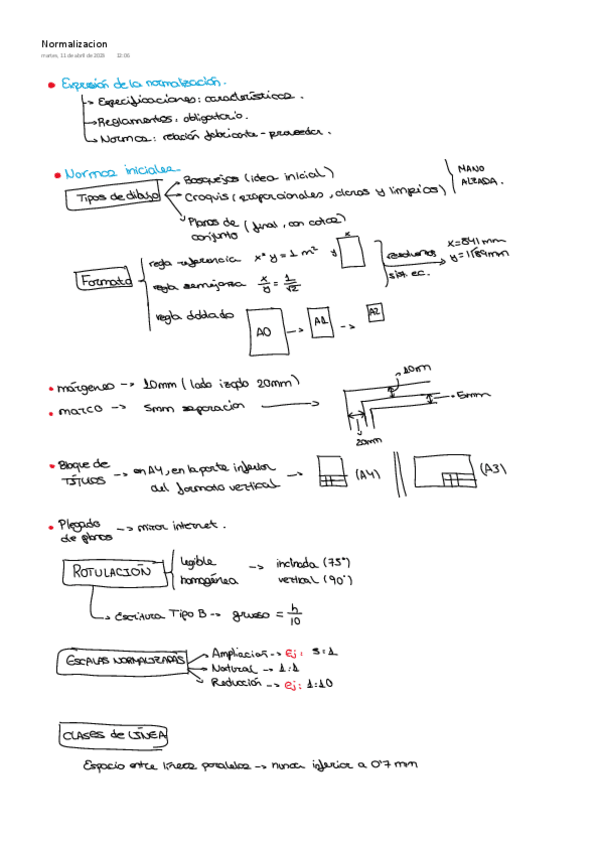 Normalizacion
martes, 11 de abril de 2023 12:06
• Expresión de la normalización.
→ Especificaciones: características.
→ Reglamentos: obligatorio.
→ Normas: relación fabricante - proveedor.
• Normas iniciales.
Tipos de dibujo
→ Bosquejos (idea inicial)
→ Croquis (proporcionales, claros y limpios)
MANO ALZADA.
→ Planos de conjunto (final, con cotas)
Formato
regla referencia x*y = 1 m²
y
x
regla semejanza x/y = 1/√2
sist. ec.
x = 841 mm
y = 1189 mm
regla doblado
A0 → A1 → A2
• márgenes → 10mm (lado izqdo 20mm)
• marco → 5mm separación →
10mm
5mm
20mm
• Bloque de títulos → en A4, en la parte inferior del formato vertical → (A4) (A3)
• Plegado de planos → mirar internet.
ROTULACIÓN
legible
homogénea
→ inclinada (75°)
vertical (90°)
→ Escritura Tipo B → grueso = h/10
ESCALAS NORMALIZADAS
→ Ampliación → ej: 5:1
→ Natural → 1:1
→ Reducción → ej: 1:10
CLASES de LÍNEA
Espacio entre líneas paralelas → nunca inferior a 0'7 mm